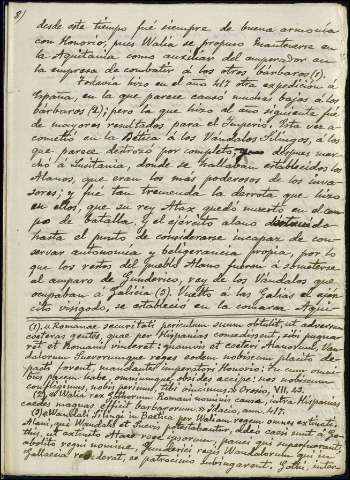 81
desde este tiempo fué siempre de buena armonía
con Honorio, pues Walia se propuso mantenerse en
la Aquitania como auxiliar del emperador en
la empresa de combatir á los otros bárbaros (1).
Todavía hizo en el año 417 otra expedición á
España, en la que parece causó muchas bajas á los
bárbaros (2); pero la que hizo al año siguiente fué
de mayores resultados para el Imperio. Esta vez a-
cometió en la Bética á los Vándalos Silingos, á los
que parece destrozó por completo, después mar-
chó á Lusitania, donde se hallaban establecidos los
Alanos, que eran los más poderosos de los inva-
sores; y fué tan tremenda la derrota que hizo
en ellos, que su rey Atax quedó muerto en el cam-
po de batalla, y el ejército alano
hasta el punto de considerarse incapaz de con-
servar autonomía y beligerancia propia, por lo
que los restos del pueblo Alano fueron á someterse
al amparo de Gunderico, rey de los Vándalos que
ocupaban á Galicia (3). Vuelto á las Galias el ejér-
cito visigodo, se estableció en la comarca Aqui-
(1). Romanae securitati periculum suum obtulit, ut adversus
ceteras gentes, quae per Hispanias consedissent, sibi pugna-
ret et Romanis vinceret: quamvis et ceteri Alanorum, Van-
dalorum Suevorumque reges eodem nobiscum placito de-
pacti forent, mandantes imperatori Honorio: Tu cum omni-
bus pacem habe, omniumque obsides accipe: nos nobiscum
confligimus, nobis perimus, tibi vincimus. Orosio, VII, 43.
(2). Walia rex Gothorum Romani nominis causa, intra Hispanias
caedes magnas efficit barbarorum. Idacio, ann. 417.
(3). Wandali Silingi in Baetica per Waliam regem omnes extincti,
Alani, qui Wandalis et Suevis potestabantur, adeo caesi sunt á Go-
this, ut extincto Atace rege ipsorum, pauci qui superfuerant,
abolito regni nomine, Gunderici regis Wandalorum, qui in
Gallaecia resederat, se patrocinio subjugarent. Gothi, inter-